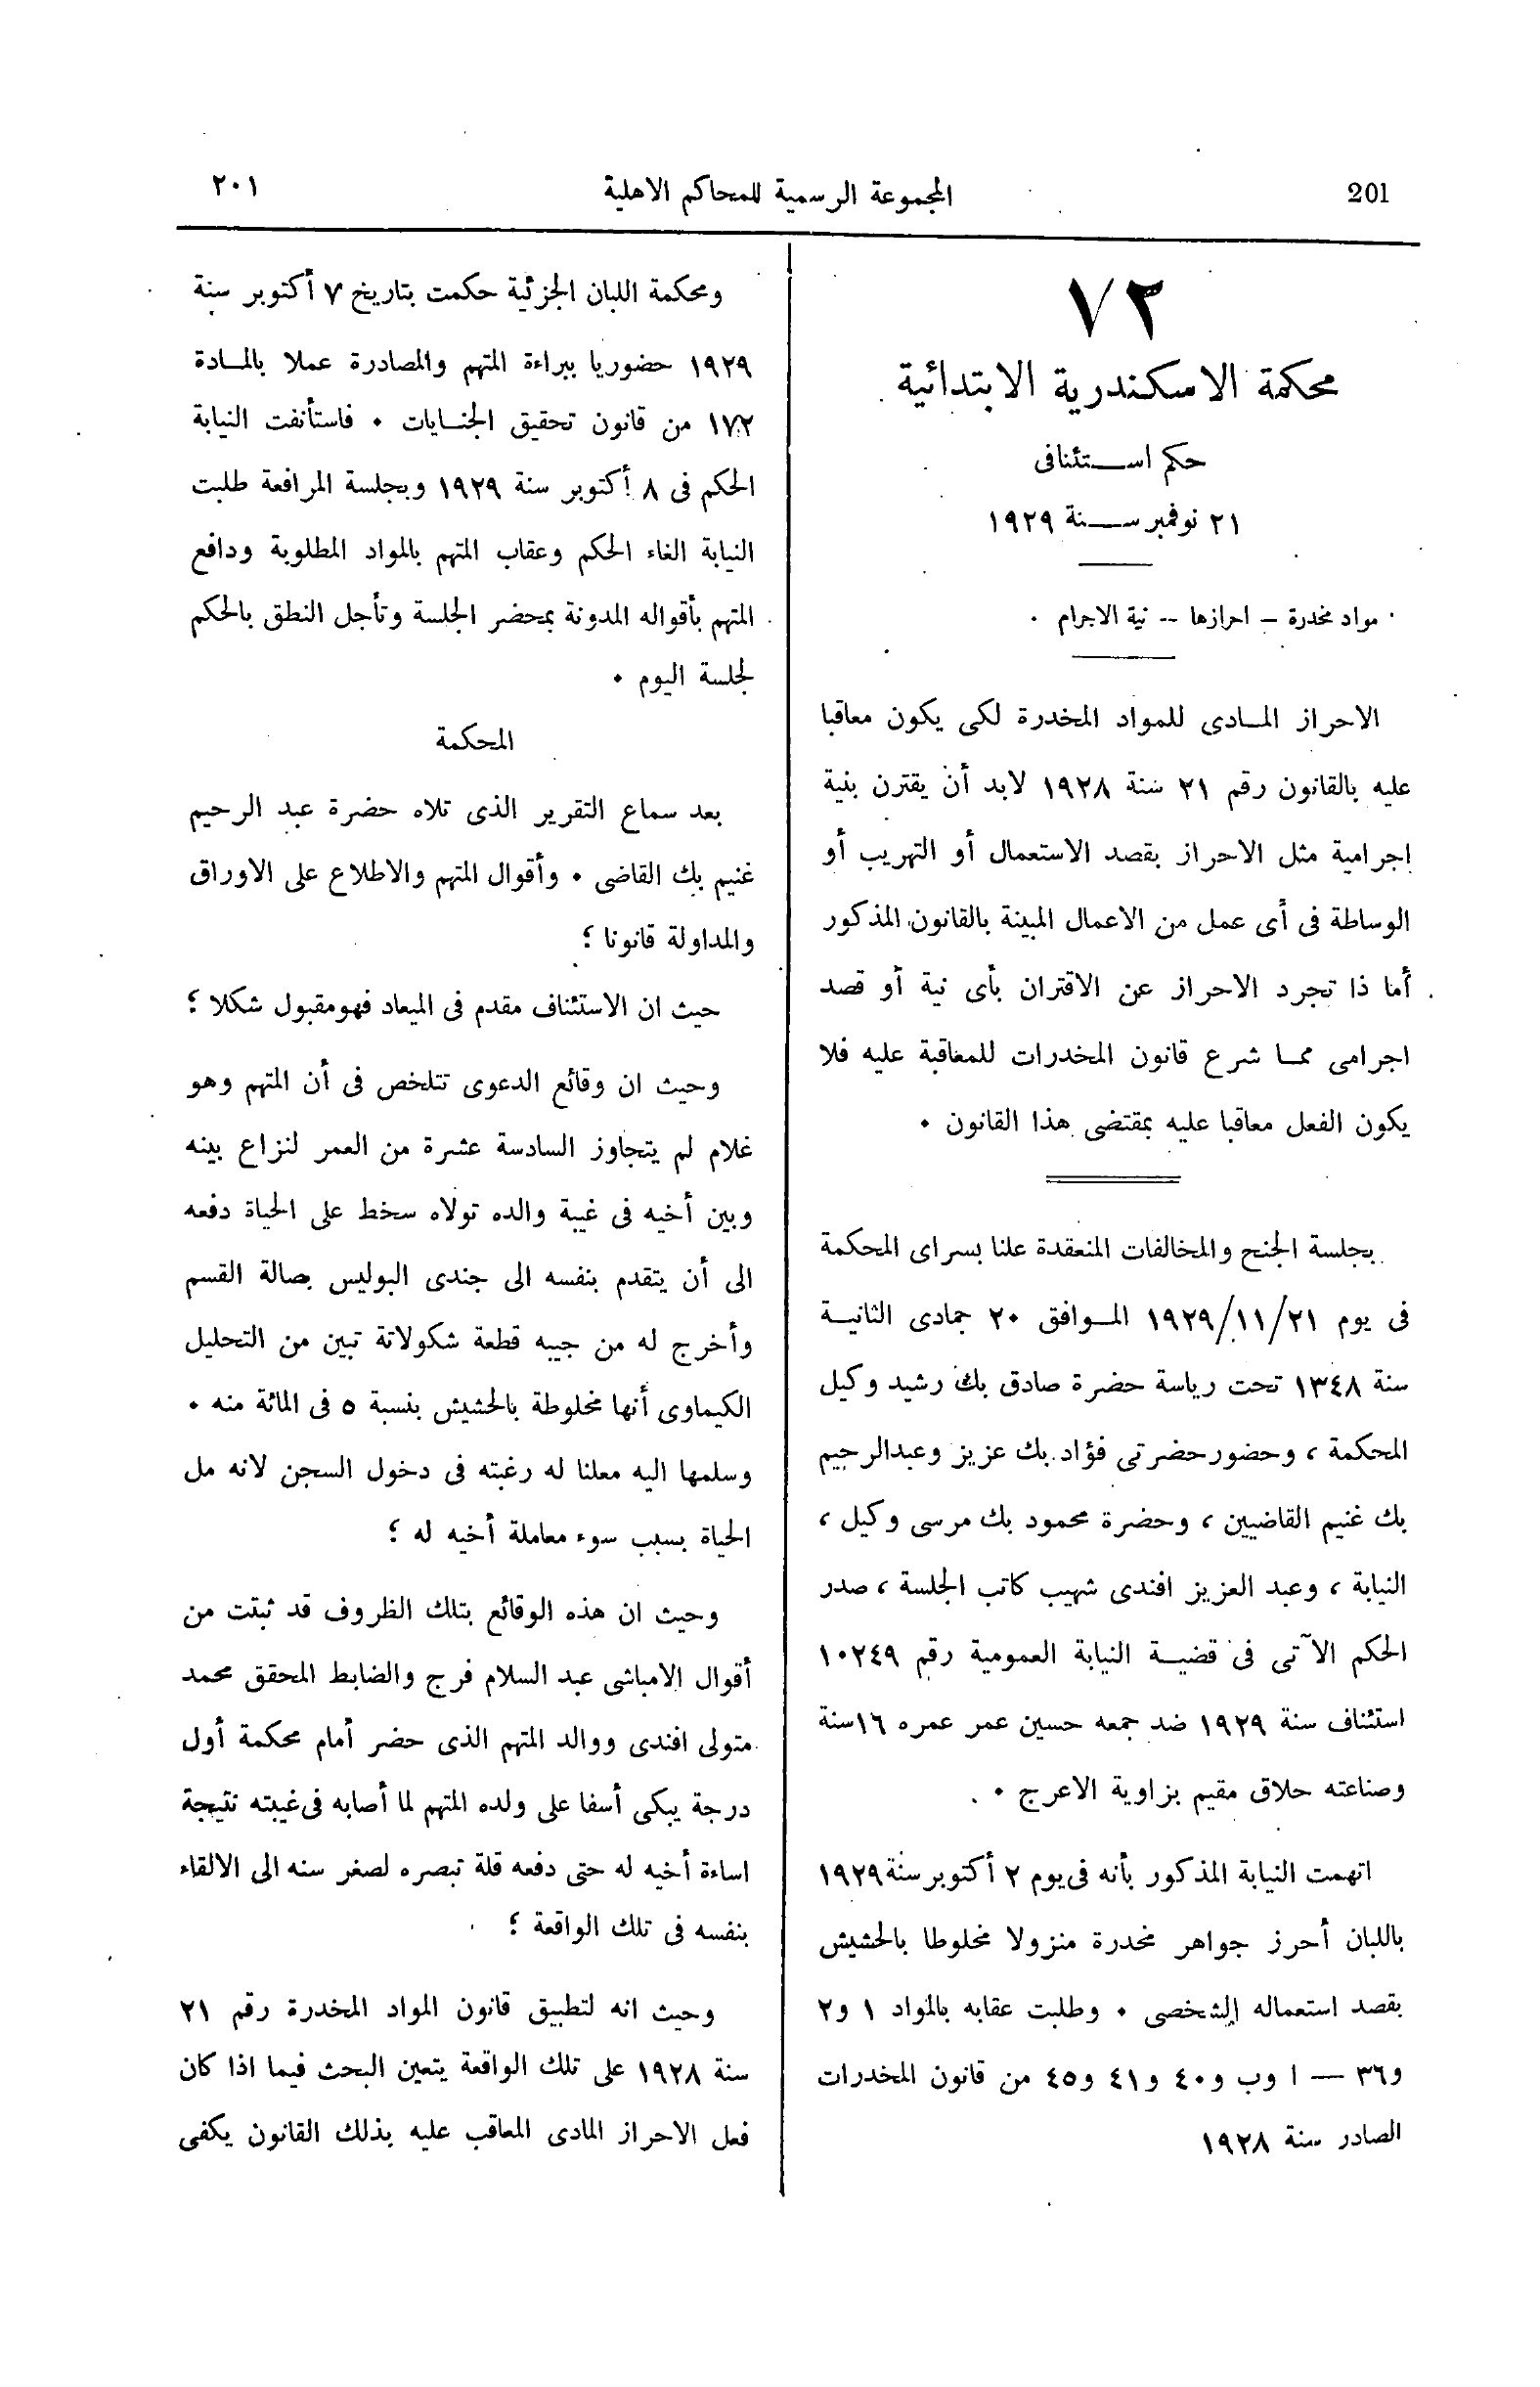 201
المجموعة الرسمية للمحاكم الاهلية
٢٠١
٧٣
محكمة الاسكندرية الابتدائية
حكم استئنافى
٢١ نوفمبر سنة ١٩٢٩
مواد مخدرة – احرازها -- نية الاجرام ٠
الاحراز المادى للمواد المخدرة لكى يكون معاقبا
عليه بالقانون رقم ٢١ سنة ١٩٢٨ لابد أن يقترن بنية
إجرامية مثل الاحراز بقصد الاستعمال أو التهريب أو
الوساطة فى أى عمل من الاعمال المبينة بالقانون المذكور
أما ذا تجرد الاحراز عن الاقتران بأى نية أو قصد
اجرامى مما شرع قانون المخدرات للمعاقبة عليه فلا
يكون الفعل معاقبا عليه بمقتضى هذا القانون ٠
بجلسة الجنح والمخالفات المنعقدة علنا بسراى المحكمة
فى يوم ١٩٢٩/١١/٢١ الموافق ٢٠ جمادى الثانية
سنة ١٣٤٨ تحت رياسة حضرة صادق بك رشيد وكيل
المحكمة ، وحضور حضرتى فؤاد بك عزيز وعبد الرحيم
بك غنيم القاضيين ، وحضرة محمود بك مرسى وكيل ،
النيابة ، وعبد العزيز افندى شهيب كاتب الجلسة ، صدر
الحكم الآتى فى قضية النيابة العمومية رقم ١٠٢٤٩
استئناف سنة ١٩٢٩ ضد جمعه حسين عمر عمره ١٦ سنة
وصناعته حلاق مقيم بزاوية الاعرج ٠
اتهمت النيابة المذكور بأنه فى يوم ٢ أكتوبر سنة ١٩٢٩
باللبان أحرز جواهر مخدرة منزولا مخلوطا بالحشيش
بقصد استعماله الشخصى ٠ وطلبت عقابه بالمواد ١ و٢
و٣٦ — ا وب و٤٠ و٤١ و٤٥ من قانون المخدرات
الصادر سنة ١٩٢٨
ومحكمة اللبان الجزئية حكمت بتاريخ ٧ أكتوبر سنة
١٩٢٩ حضوريا ببراءة المتهم والمصادرة عملا بالمادة
١٧٢ من قانون تحقيق الجنايات ٠ فاستأنفت النيابة
الحكم فى ٨ أكتوبر سنة ١٩٢٩ وبجلسة المرافعة طلبت
النيابة الغاء الحكم وعقاب المتهم بالمواد المطلوبة ودافع
المتهم بأقواله المدونة بمحضر الجلسة وتأجل النطق بالحكم
لجلسة اليوم ٠
المحكمة
بعد سماع التقرير الذى تلاه حضرة عبد الرحيم
غنيم بك القاضى ٠ وأقوال المتهم والاطلاع على الاوراق
والمداولة قانونا ؛
حيث ان الاستئناف مقدم فى الميعاد فهو مقبول شكلا ؛
وحيث ان وقائع الدعوى تتلخص فى أن المتهم وهو
غلام لم يتجاوز السادسة عشرة من العمر لنزاع بينه
وبين أخيه فى غيبة والده تولاه سخط على الحياة دفعه
الى أن يتقدم بنفسه الى جندى البوليس بصالة القسم
وأخرج له من جيبه قطعة شكولاتة تبين من التحليل
الكيماوى أنها مخلوطة بالحشيش بنسبة ٥ فى المائة منه ٠
وسلمها اليه معلنا له رغبته فى دخول السجن لانه مل
الحياة بسبب سوء معاملة أخيه له ؛
وحيث ان هذه الوقائع بتلك الظروف قد ثبتت من
أقوال الامباشى عبد السلام فرج والضابط المحقق محمد
متولى افندى ووالد المتهم الذى حضر أمام محكمة أول
درجة يبكى أسفا على ولده المتهم لما أصابه فى غيبته نتيجة
اساءة أخيه له حتى دفعه قلة تبصره لصغر سنه الى الالقاء
بنفسه فى تلك الواقعة ؛
وحيث انه لتطبيق قانون المواد المخدرة رقم ٢١
سنة ١٩٢٨ على تلك الواقعة يتعين البحث فيما اذا كان
فعل الاحراز المادى المعاقب عليه بذلك القانون يكفى